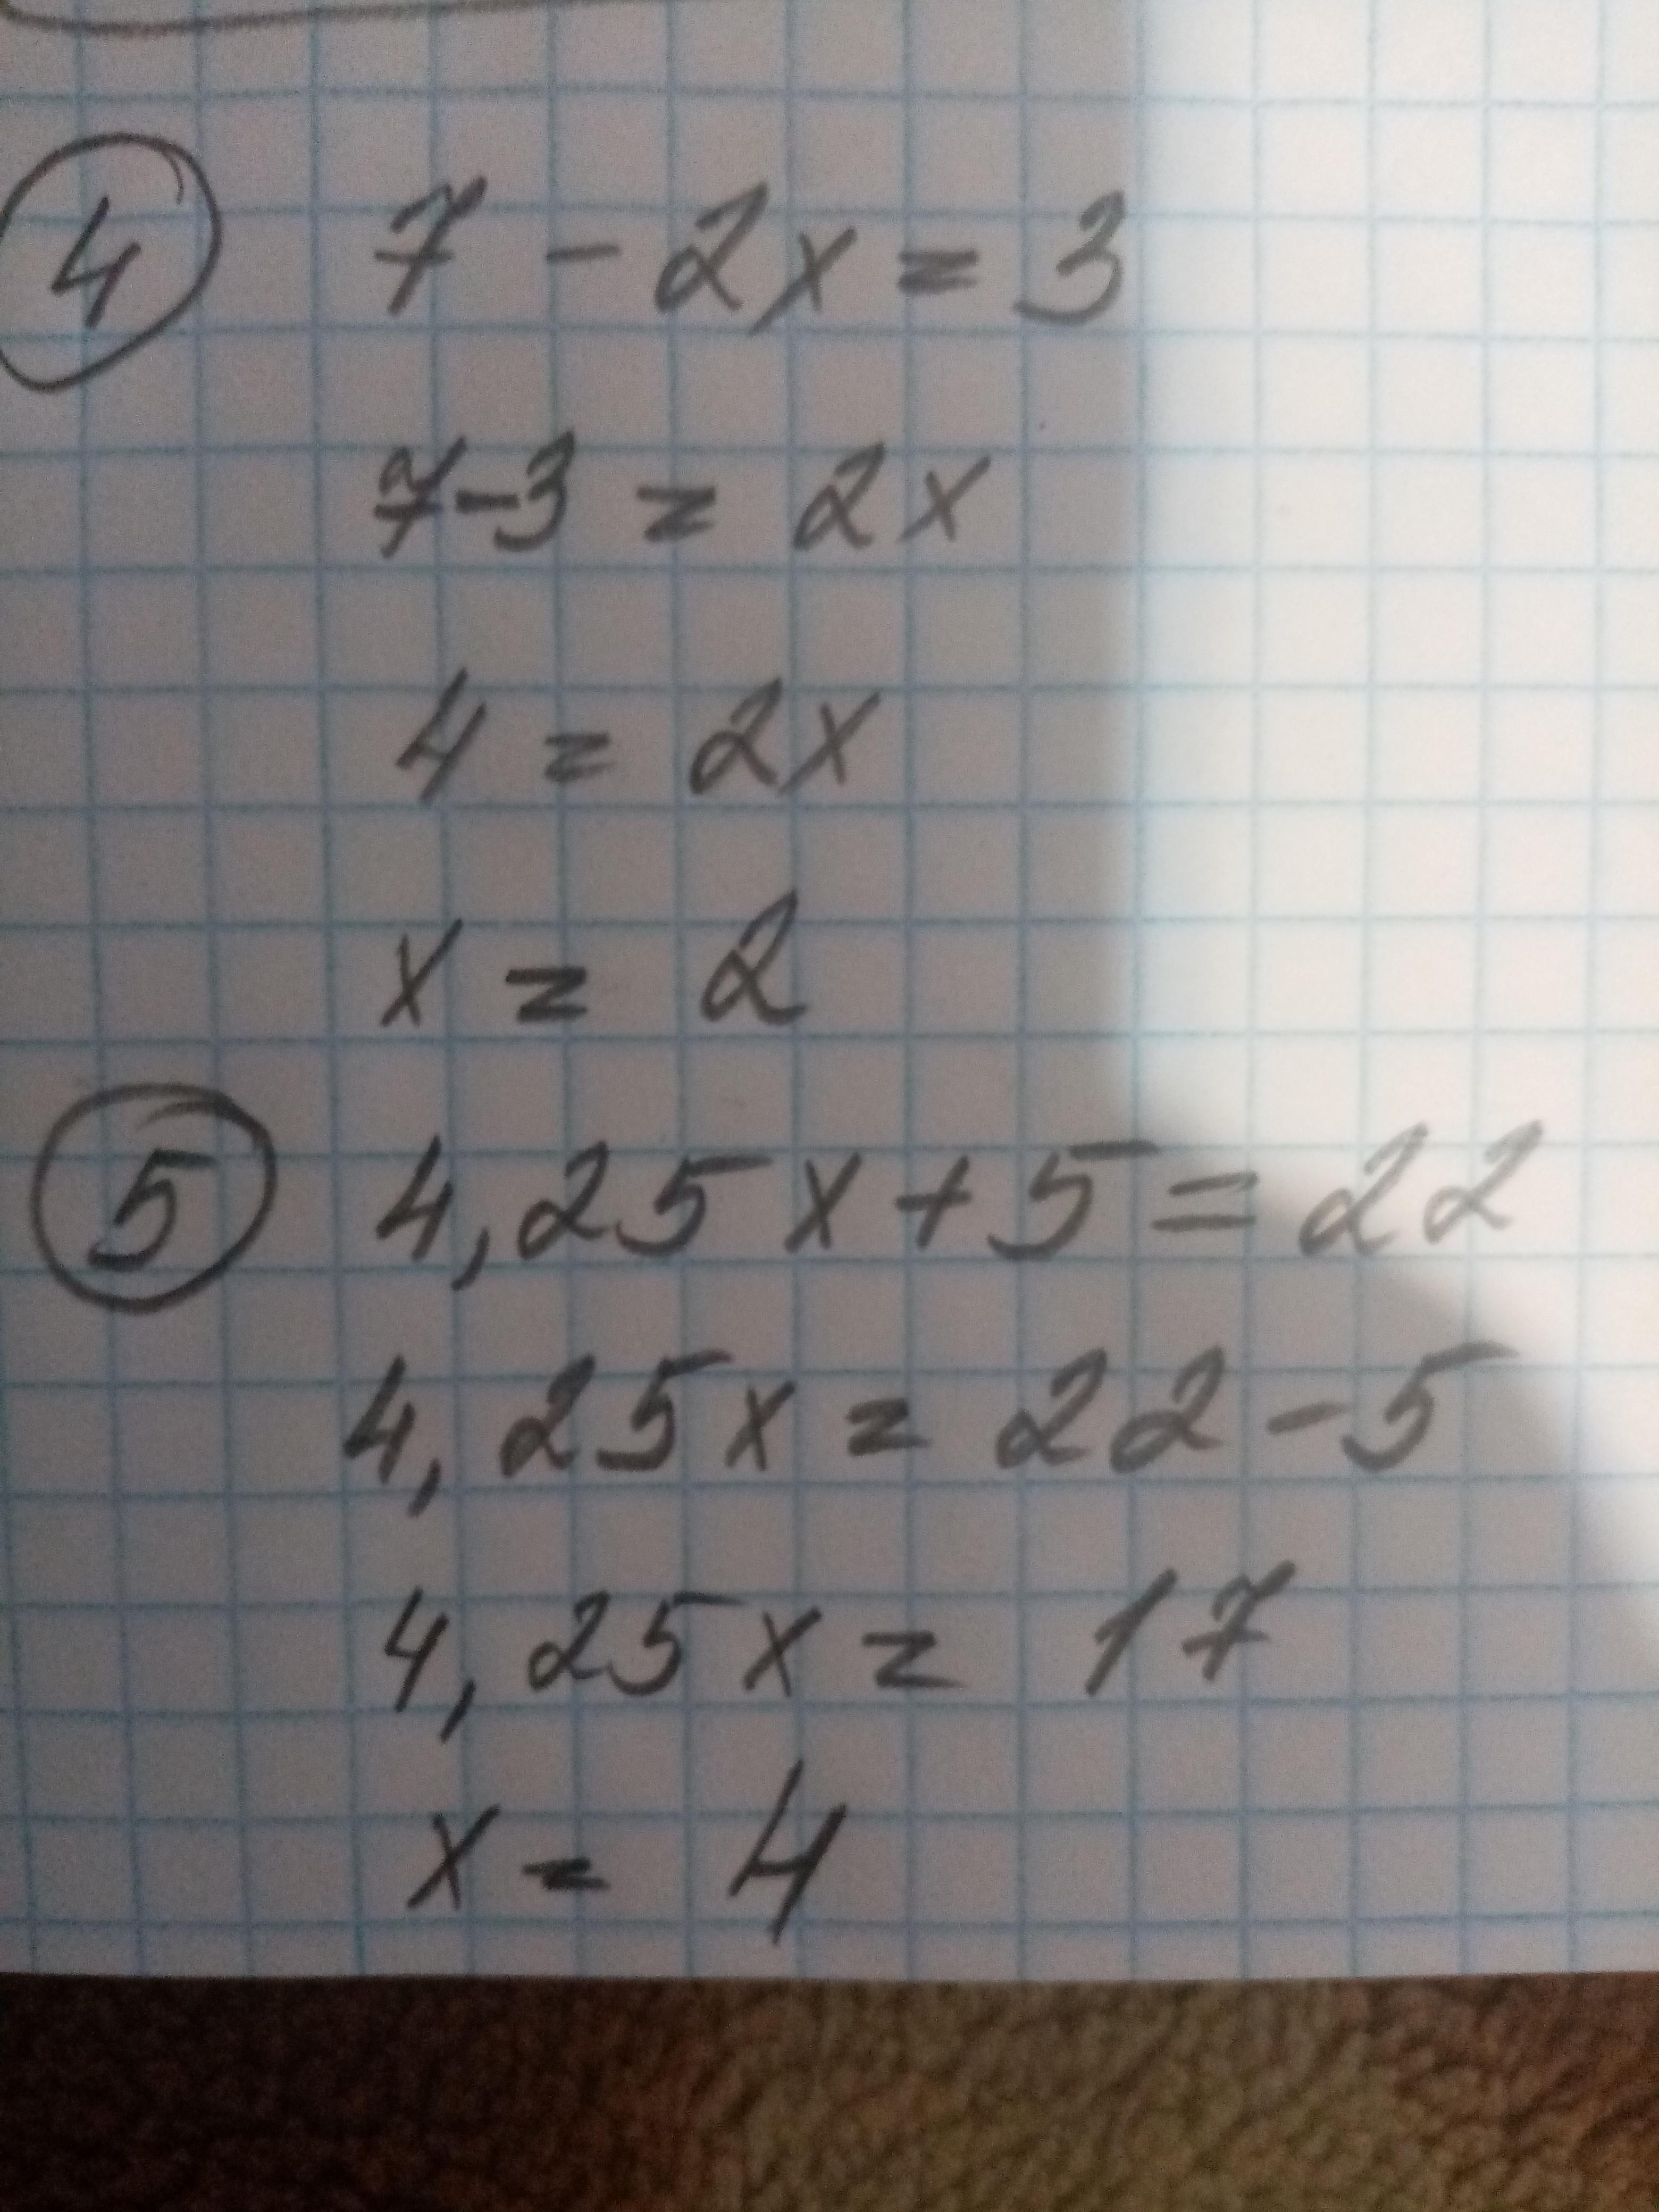 4 7 - 2x = 3
7-3 = 2x
4 = 2x
x = 2
5 4,25x+5=22
4,25x = 22-5
4,25x = 17
x = 4